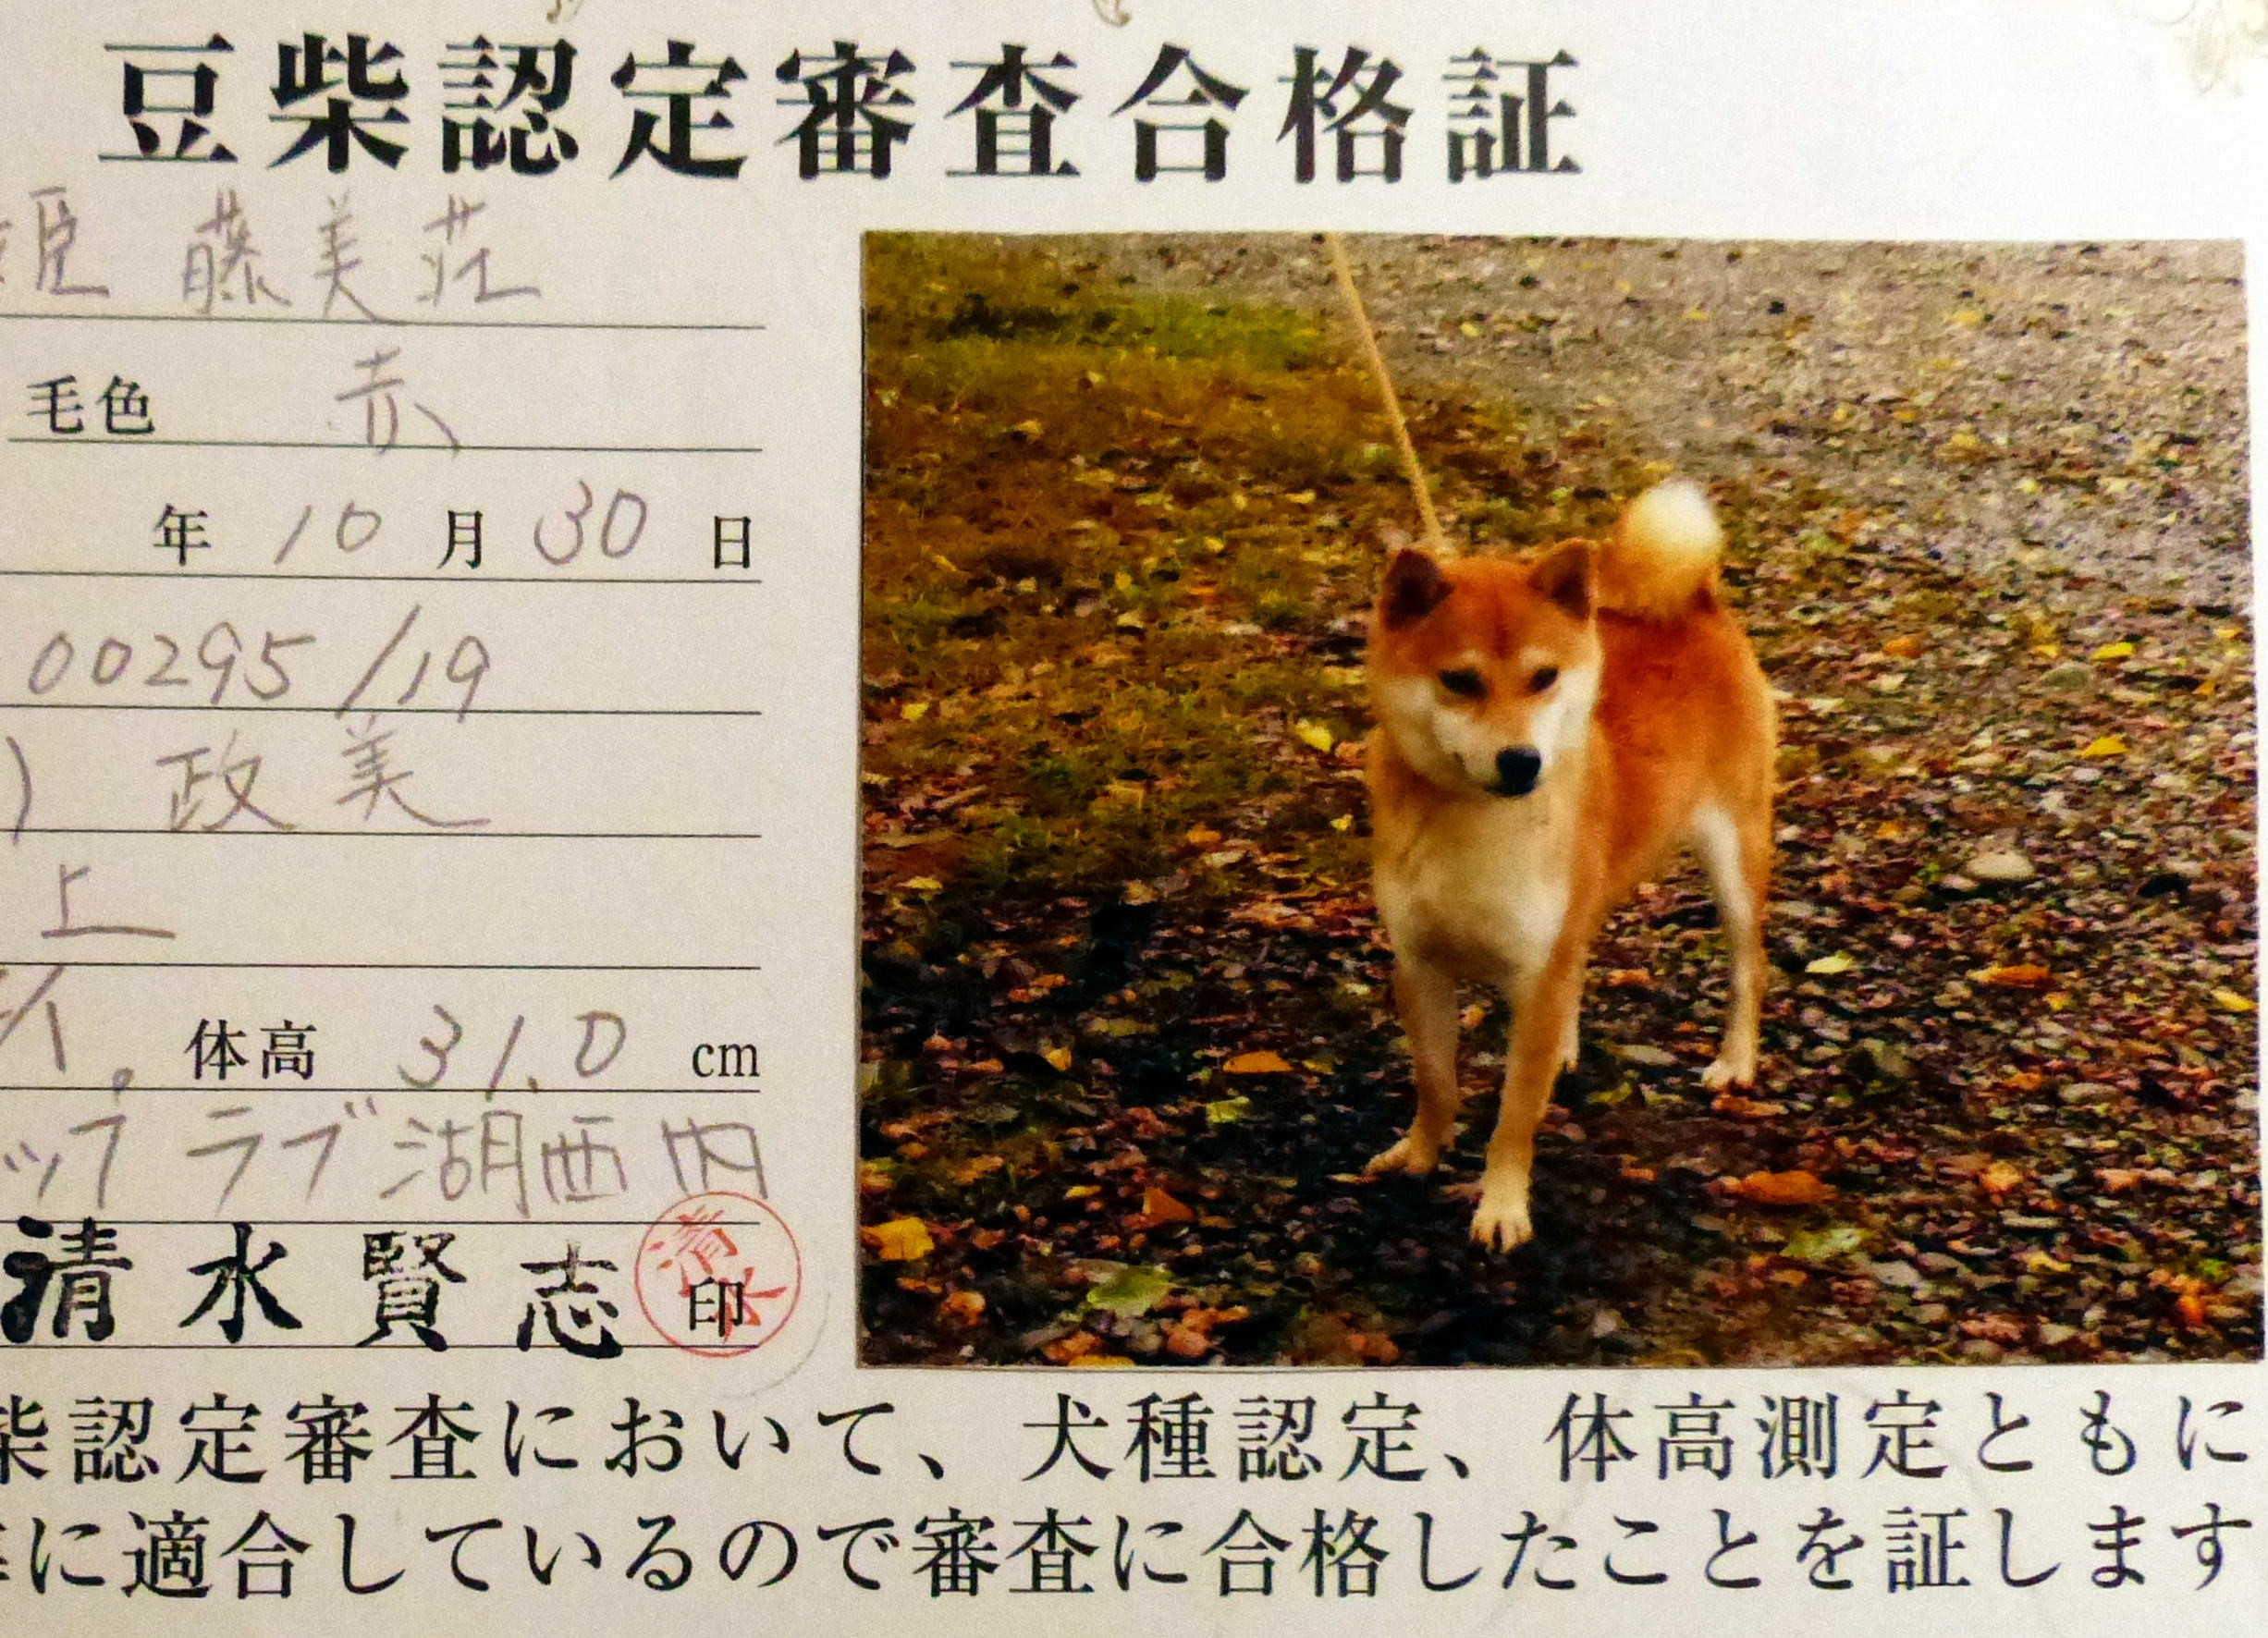 豆柴認定審査合格証
姫 藤美荘
毛色 赤
年 10 月 30 日
00295/19
) 政美
上
体高 31.0 cm
ップラブ湖西内
清水賢志 印
清水
柴認定審査において、犬種認定、体高測定ともに
準に適合しているので審査に合格したことを証します